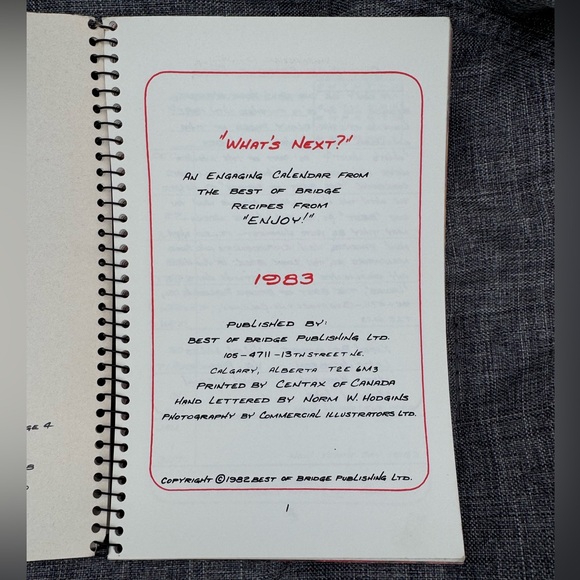 "What's Next?"
An Engaging Calendar from
the Best of Bridge
Recipes from
"Enjoy!"
1983
Published by:
Best of Bridge Publishing Ltd.
105-4711-13th Street N.E.
Calgary, Alberta T2E 6M3
Printed by Centax of Canada
Hand Lettered by Norm W. Hodgins
Photography by Commercial Illustrators Ltd.
Copyright ©1982 Best of Bridge Publishing Ltd.
1